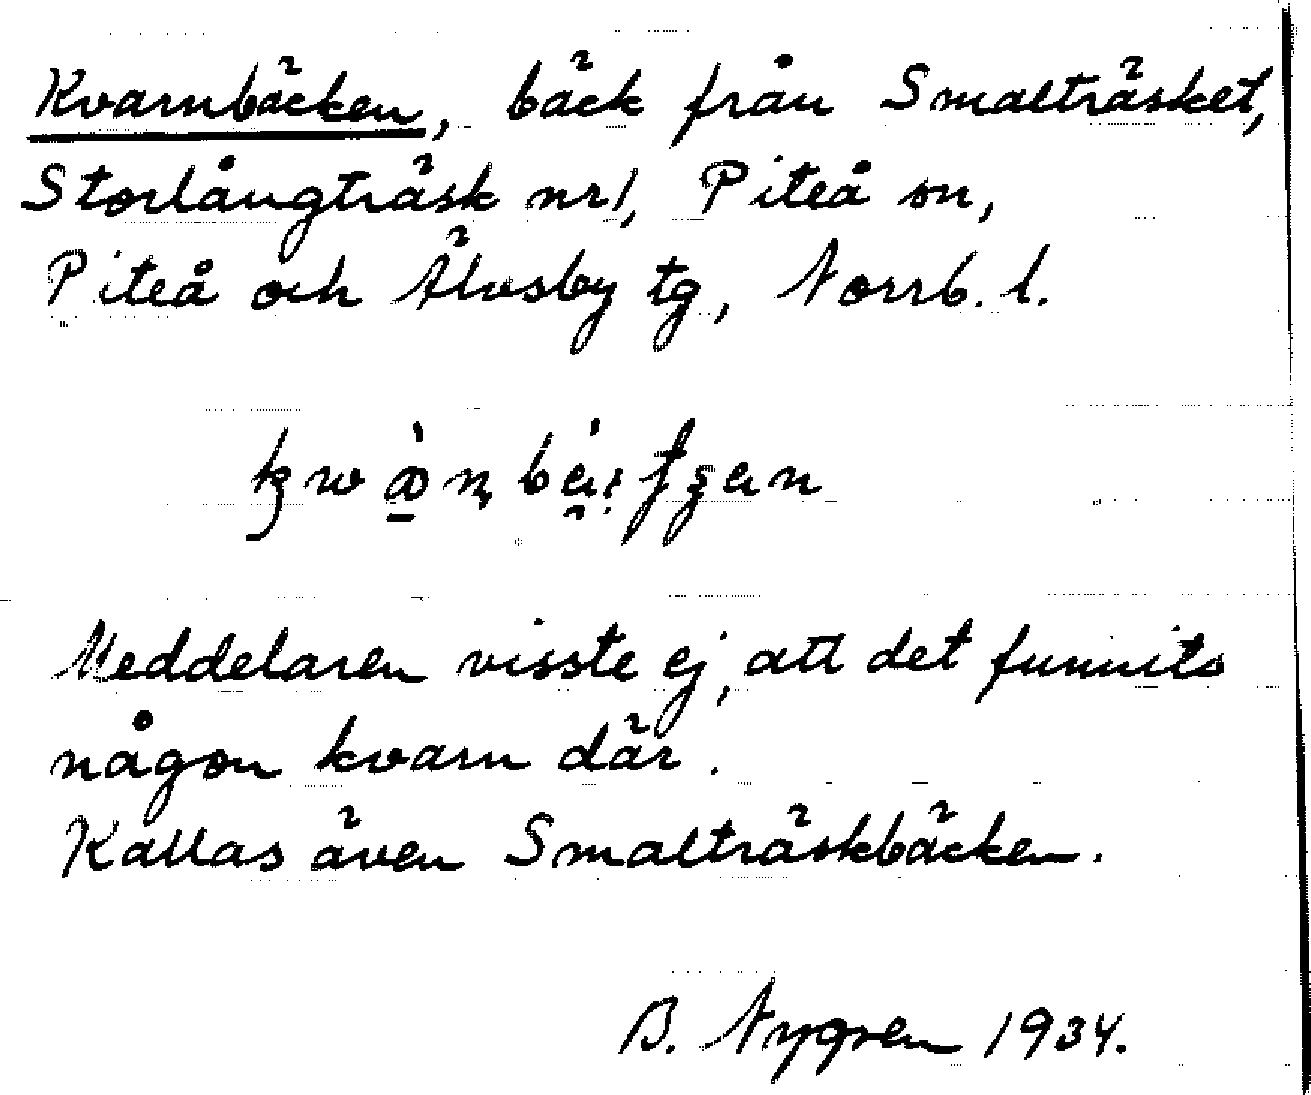 Kvarnbäcken, bäck från Smalträsket,
Storlångträsk nr 1, Piteå sn,
Piteå och Älvsby tg, Norrb. l.
Meddelaren visste ej, att det funnits
någon kvarn där.
Kallas även Smalträskbäcken.
B. Nygren 1934.